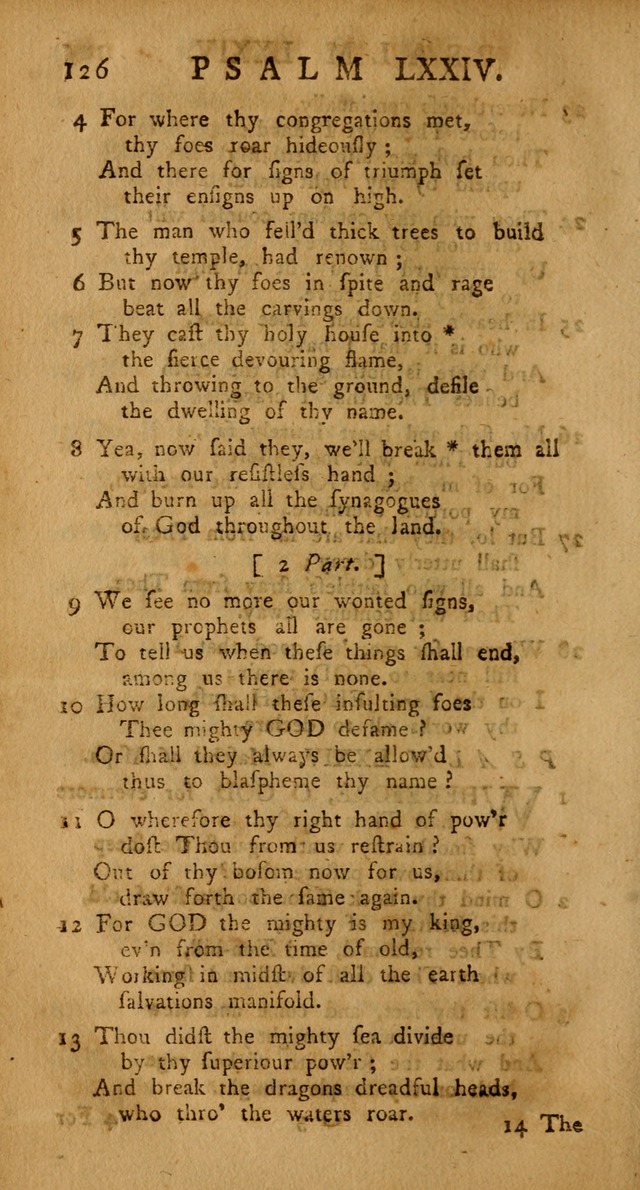 126 PSALM LXXIV.
4 For where thy congregations met,
thy foes roar hideouſly ;
And there for ſigns of triumph ſet
their enſigns up on high.
5 The man who fell'd thick trees to build
thy temple, had renown ;
6 But now thy foes in ſpite and rage
beat all the carvings down.
7 They caſt thy holy houſe into *
the fierce devouring flame,
And throwing to the ground, defile
the dwelling of thy name.
8 Yea, now ſaid they, we'll break * them all
with our reſiſtleſs hand ;
And burn up all the ſynagogues
of God throughout the land.
[ 2 Part. ]
9 We ſee no more our wonted ſigns,
our prophets all are gone ;
To tell us when theſe things ſhall end,
among us there is none.
10 How long ſhall theſe inſulting foes
Thee mighty GOD defame ?
Or ſhall they always be allow'd
thus to blaſpheme thy name ?
11 O wherefore thy right hand of pow'r
doſt Thou from us reſtrain ?
Out of thy boſom now for us,
draw forth the ſame again.
12 For GOD the mighty is my king,
ev'n from the time of old,
Working in midſt of all the earth
ſalvations manifold.
13 Thou didſt the mighty ſea divide
by thy ſuperiour pow'r ;
And break the dragons dreadful heads,
who thro' the waters roar.
14 The